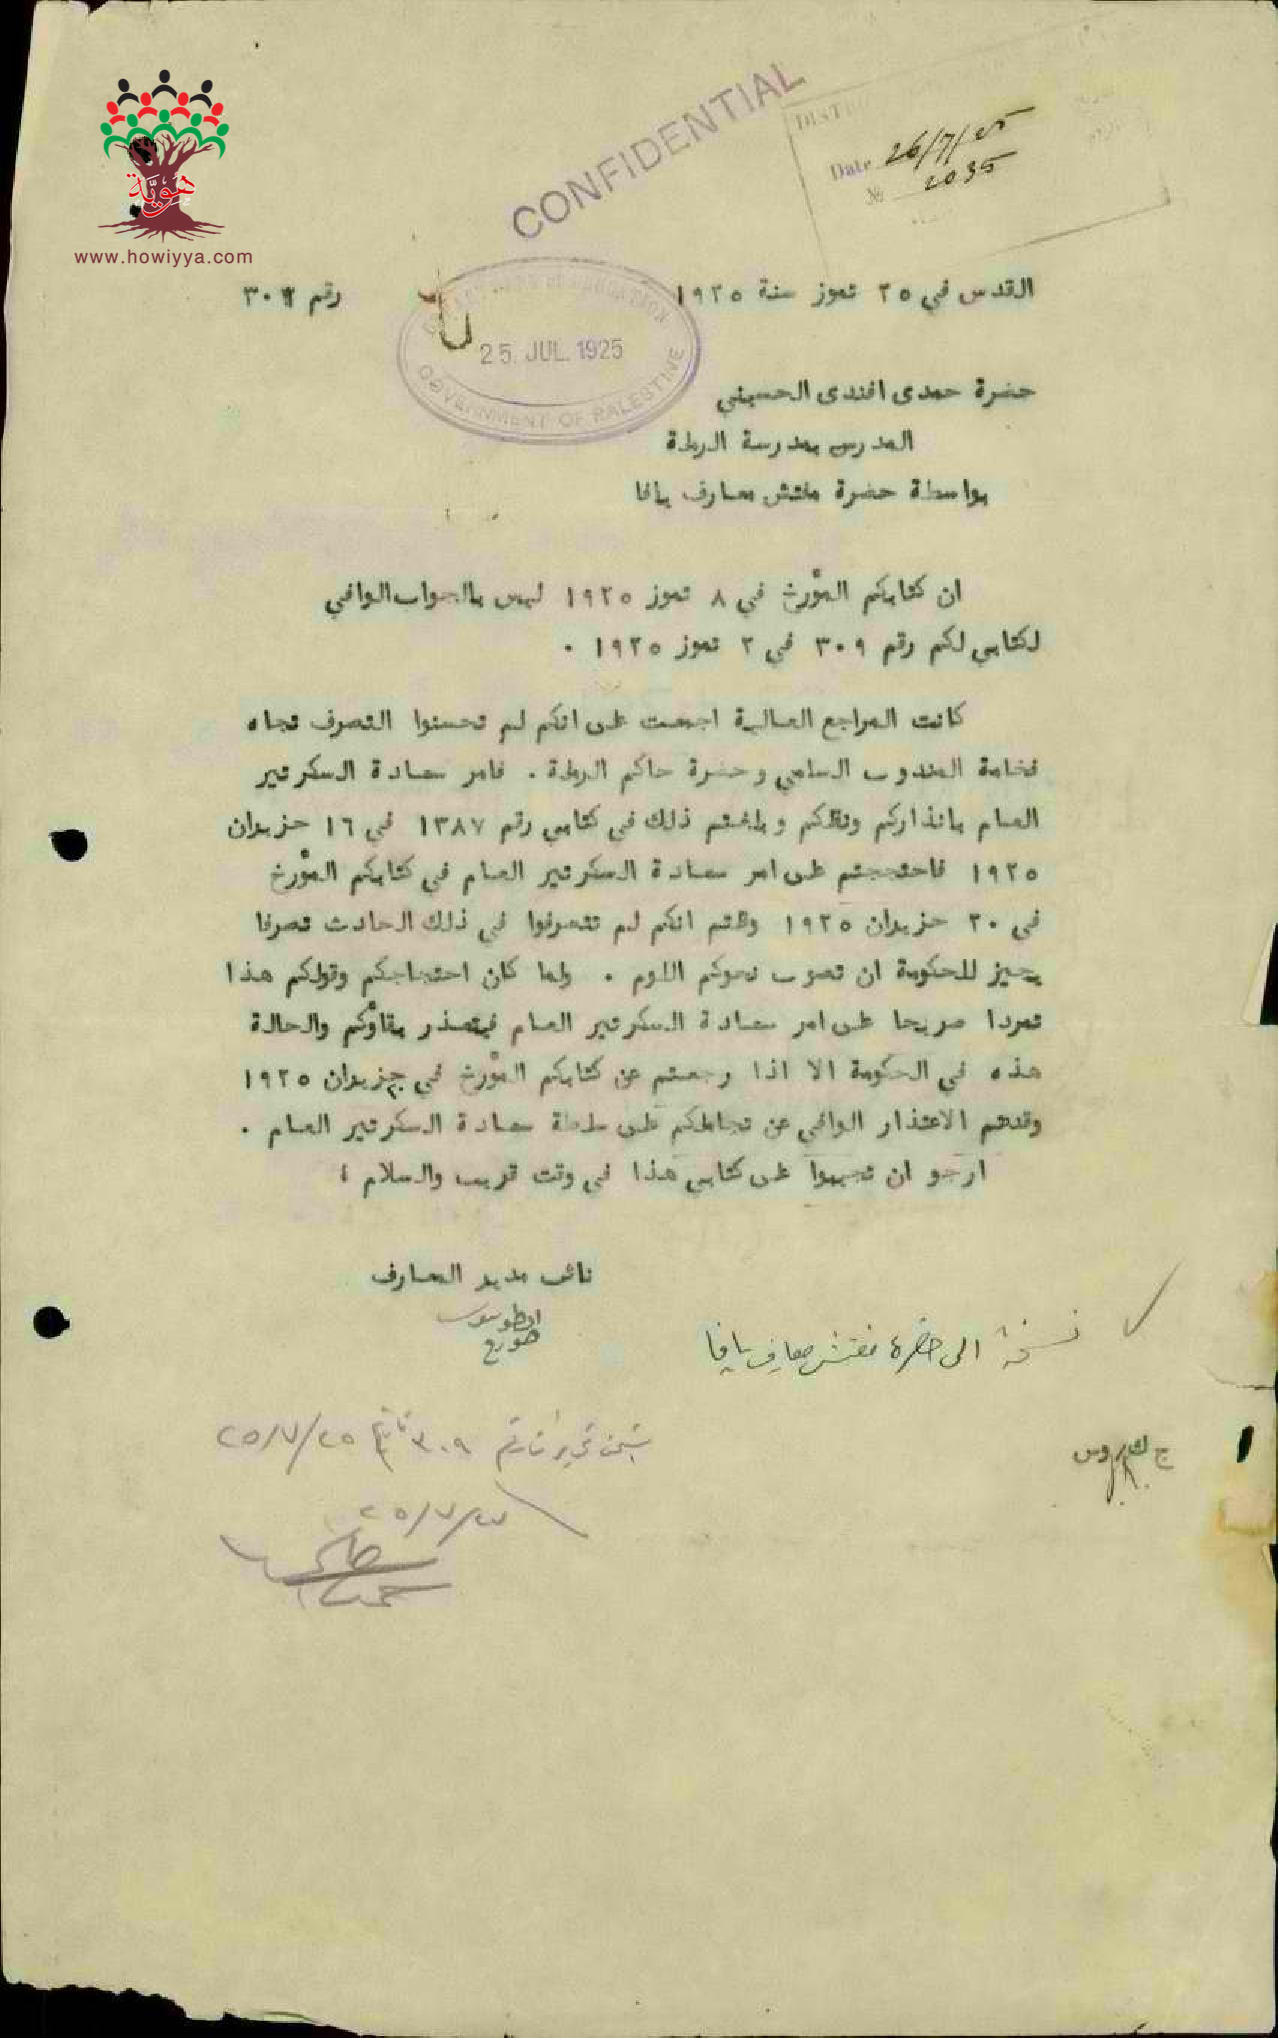 هويّة
www.howiyya.com
CONFIDENTIAL
Date 26/7/25
№ 2035
القدس في ٢٥ تموز سنة ١٩٢٥
رقم ٣٠٩
25. JUL. 1925
GOVERNMENT OF PALESTINE
حضرة حمدى افندى الحسيني
المدرس بمدرسة الرملة
بواسطة حضرة مفتش معارف يافا
ان كتابكم المؤرخ في ٨ تموز ١٩٢٥ ليس بالجواب الوافي
لكتابي لكم رقم ٣٠٩ في ٢ تموز ١٩٢٥ .
كانت المراجع العالية اجمعت على انكم لم تحسنوا التصرف تجاه
فخامة المندوب السامي وحضرة حاكم الرملة . فامر سعادة السكرتير
العام بانذاركم ونقلكم وبلغتم ذلك في كتابي رقم ١٣٨٧ في ١٦ حزيران
١٩٢٥ فاحتججتم على امر سعادة السكرتير العام في كتابكم المؤرخ
في ٢٠ حزيران ١٩٢٥ وقلتم انكم لم تتصرفوا في ذلك الحادث تصرفا
يجيز للحكومة ان تصوب نحوكم اللوم . ولما كان احتجاجكم وقولكم هذا
تمردا صريحا على امر سعادة السكرتير العام فيتعذر بقاؤكم والحالة
هذه في الحكومة الا اذا رجعتم عن كتابكم المؤرخ في حزيران ١٩٢٥
وقدمتم الاعتذار الوافي عن تجاملكم على سلطة سعادة السكرتير العام .
ارجو ان تجيبوا على كتابي هذا في وقت قريب والسلام ؛
نائب مدير المعارف
نسخة الى حضرة مفتش معارف يافا
٣٠٩
٢٥/٧/٢٥
٢٥/٧/٢٧